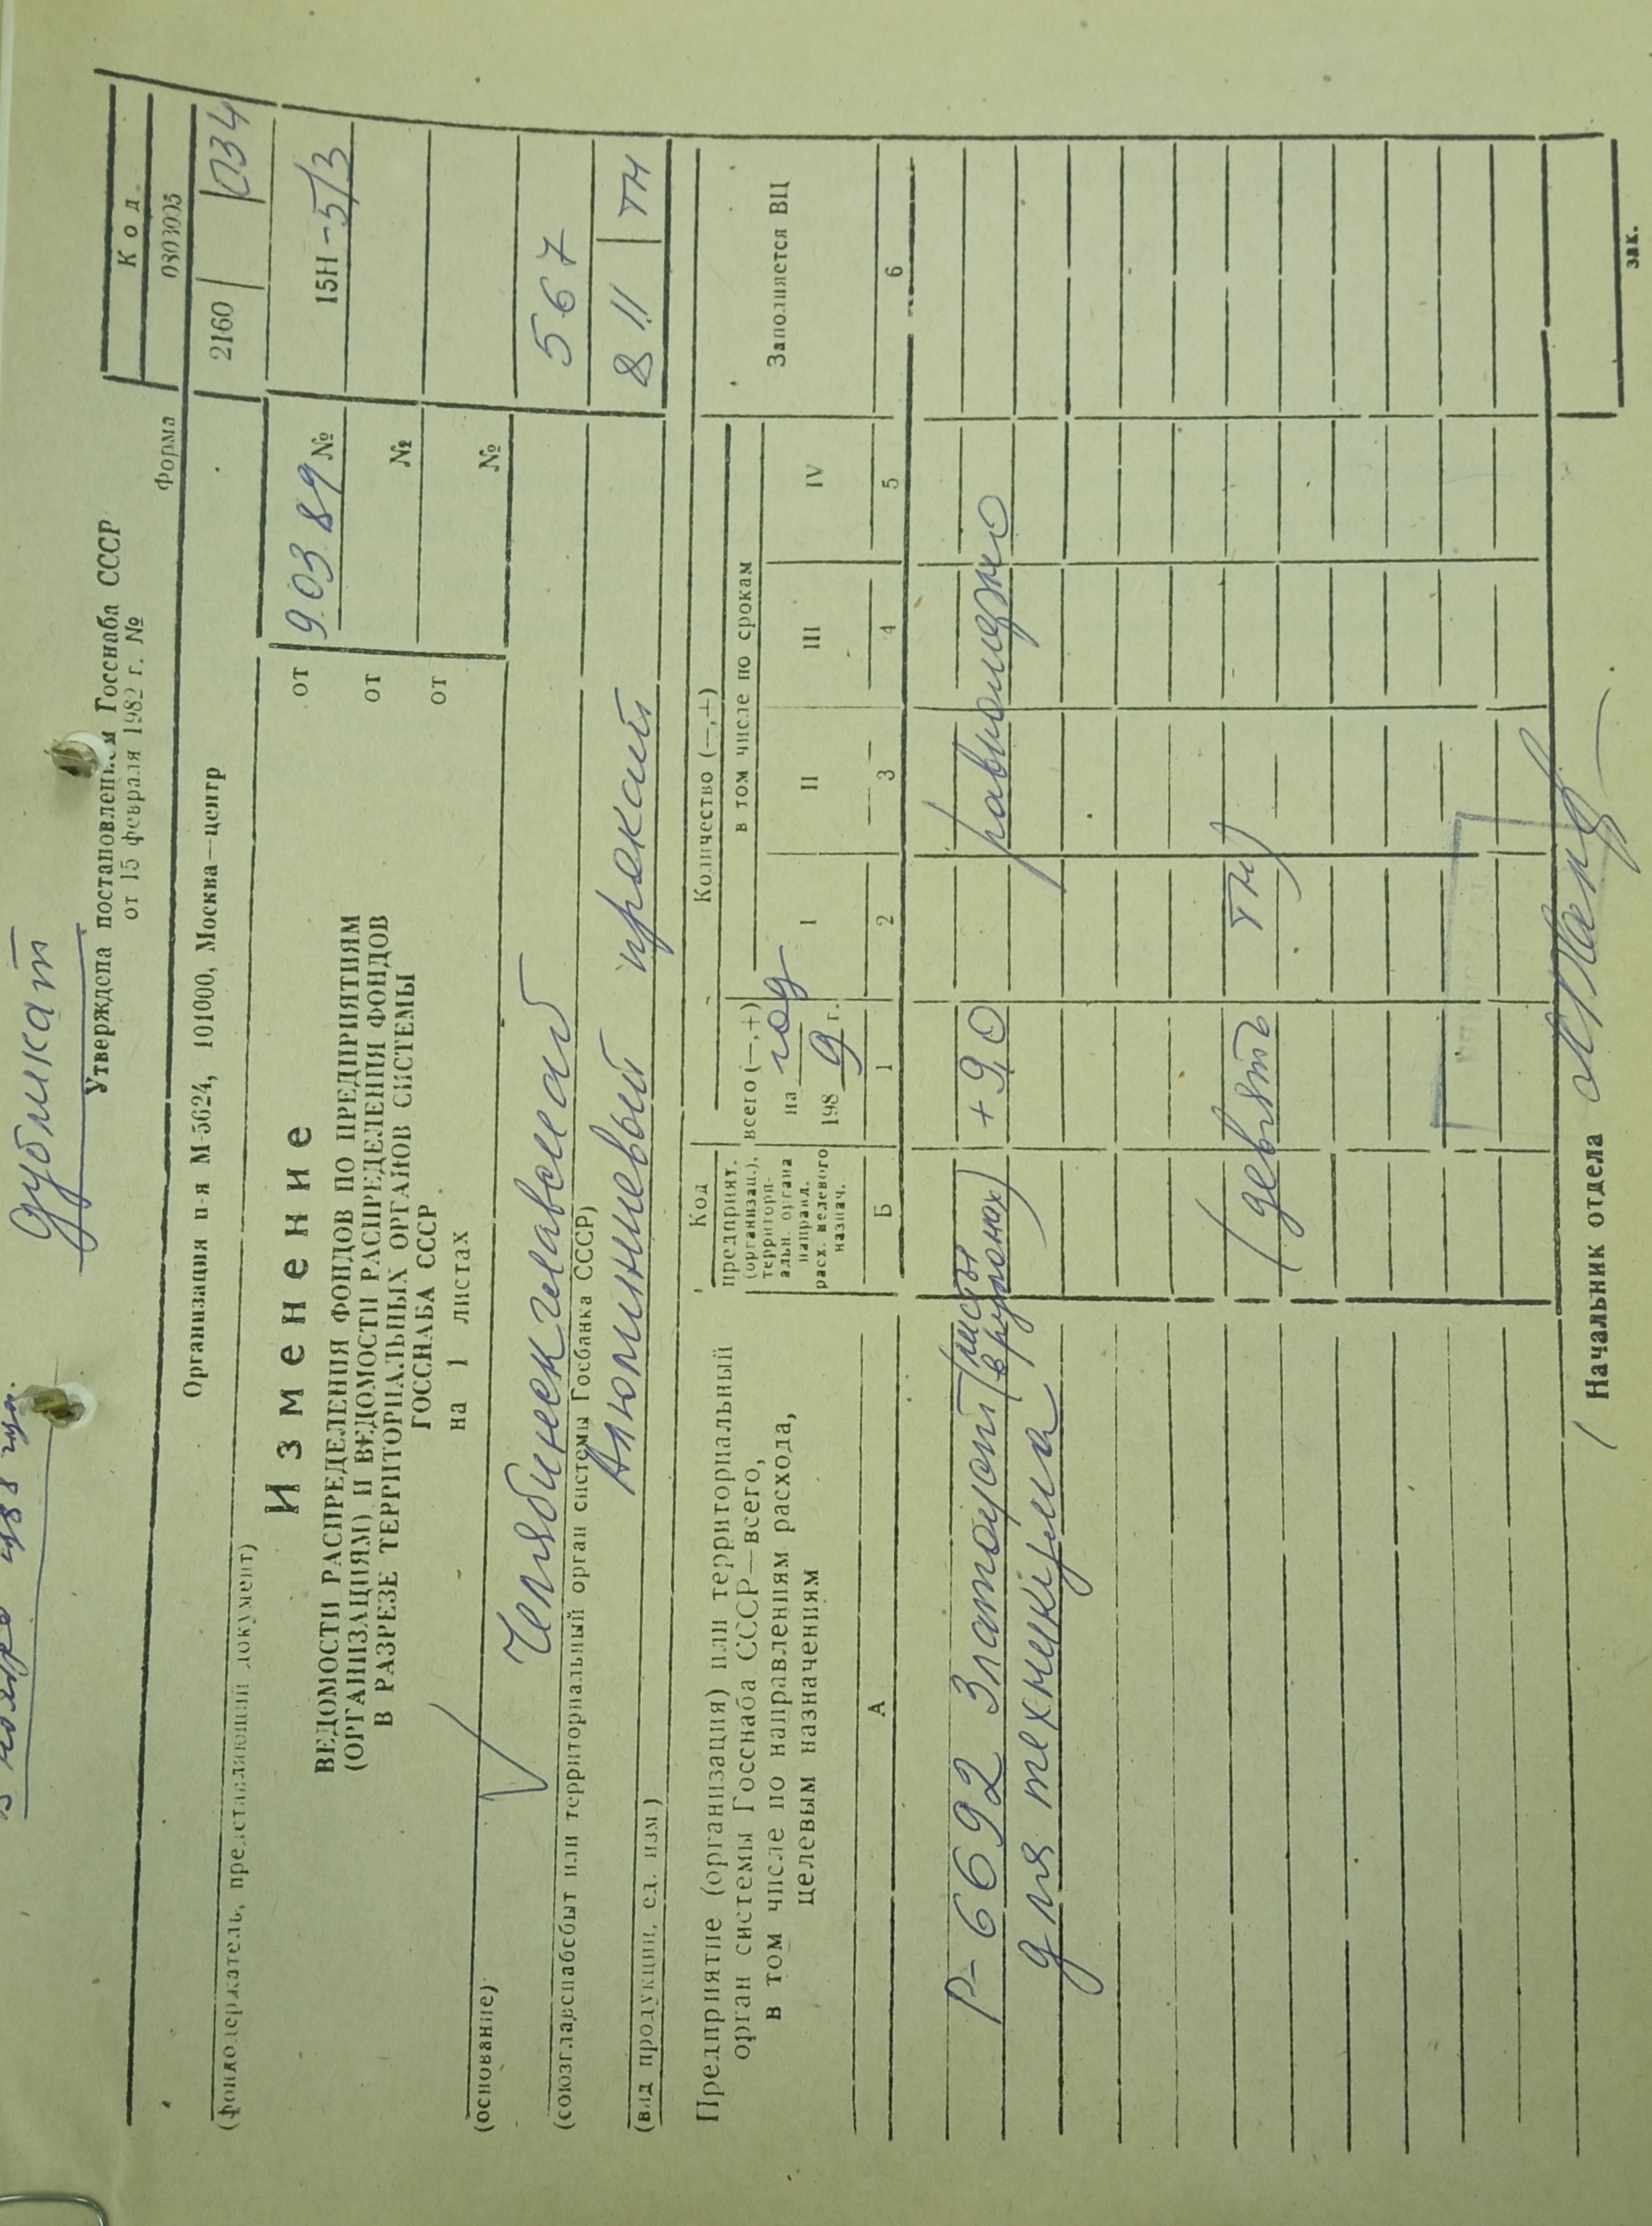 Дубликат
Утверждена постановлением Госснаба СССР
от 15 февраля 1982 г. №
Код
Форма 0803005
Организация п-я М-5624, 101000, Москва—центр
2160 034
(фондодержатель, представляющий документ)
Изменение
от 9.03.89 № 15Н-5/3
ВЕДОМОСТИ РАСПРЕДЕЛЕНИЯ ФОНДОВ ПО ПРЕДПРИЯТИЯМ
(ОРГАНИЗАЦИЯМ) И ВЕДОМОСТИ РАСПРЕДЕЛЕНИЯ ФОНДОВ
В РАЗРЕЗЕ ТЕРРИТОРИАЛЬНЫХ ОРГАНОВ СИСТЕМЫ
ГОССНАБА СССР
от №
от №
на 1 листах
(основание)
Челябинскглавснаб 567
(союзглавснабсбыт или территориальный орган системы Госбанка СССР)
Алюминиевый прокат 811 тн
(вид продукции, ед. изм)
Предприятие (организация) или территориальный
орган системы Госснаба СССР—всего,
в том числе по направлениям расхода,
целевым назначениям
Код
предприят.
(организац.),
территори-
альн. органа
направл.
расх. целевого
назнач.
Количество (—,+)
всего (—,+)
на год
1989 г.
в том числе по срокам
I II III IV
Заполняется ВЦ
А Б 1 2 3 4 5 6
Р-6692 Златоуст (листы в рулонах) +9,0 равномерно
для техникума
(девять тн)
Начальник отдела
зак.